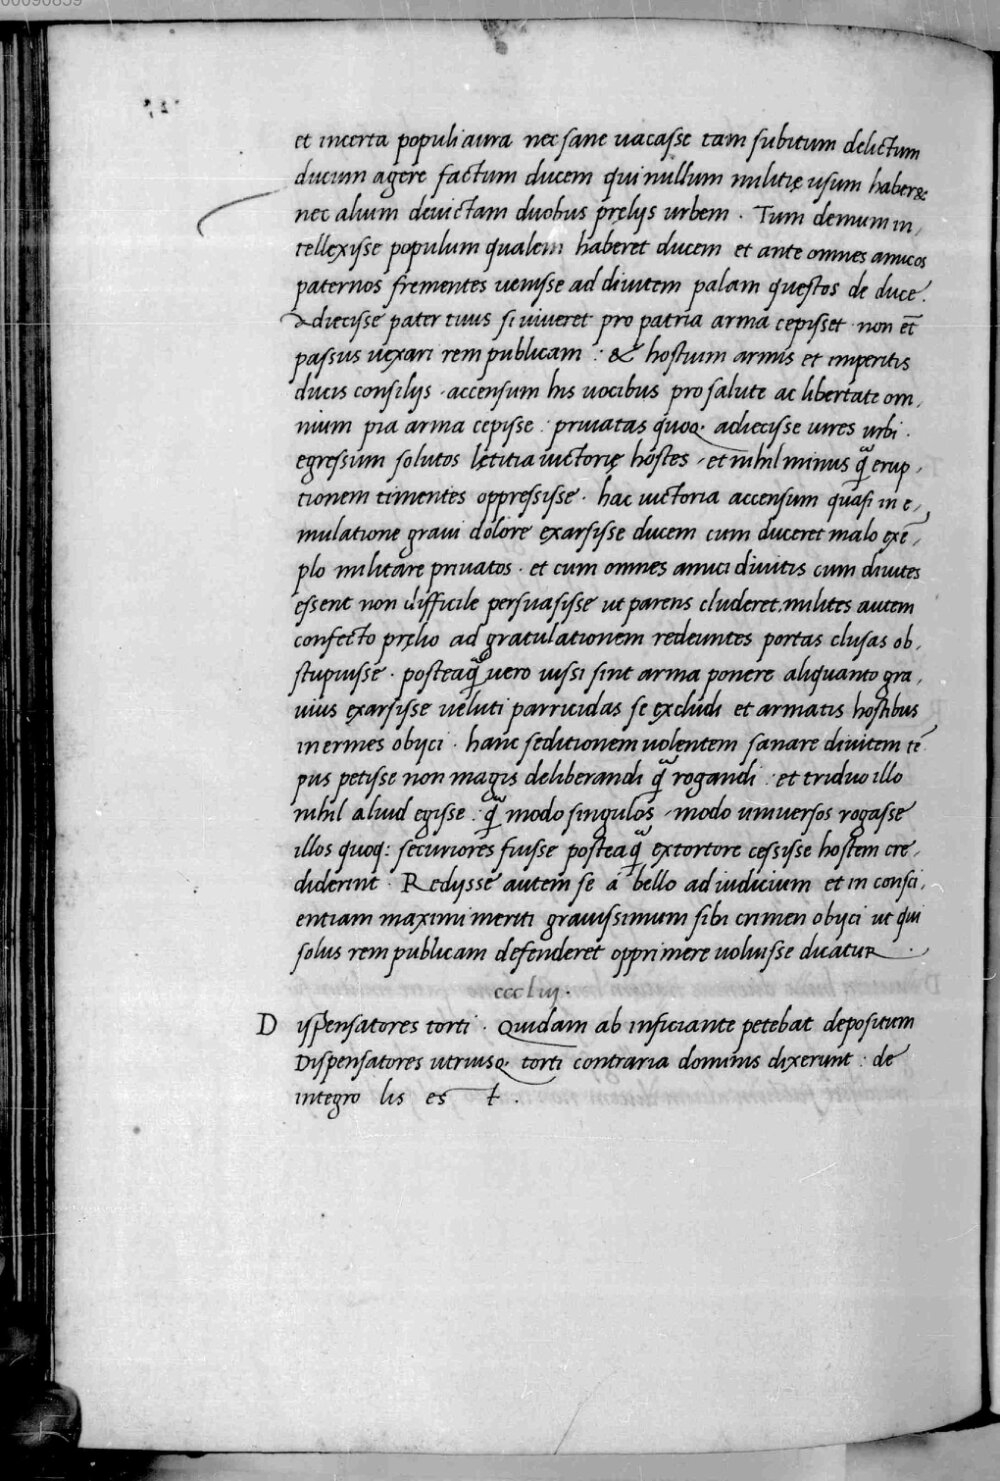 00090859
et incerta populi aura nec sane uacasse tam subitum delictum
ducum agere factum ducem qui nullum militię usum haber&
nec alium deuictam duobus prelijs urbem . Tum demum in,
tellexisse populum qualem haberet ducem et ante omnes amicos
paternos frementes uenisse ad diuitem palam questos de duce .
adiecisse pater tuus si uiueret pro patria arma cepisset non eēt
passus uexari rem publicam : & hostium armis et imperitis
ducis consilijs . accensum his uocibus pro salute ac libertate om,
nium pia arma cepisse . priuatas quoq. adiecisse uires urbi .
egressum solutos lętitia uictorię hostes , et nihil minus q̄ erup,
tionem timentes oppressisse . hac uictoria accensum quasi in e,
mulatione graui dolore exarsisse ducem cum duceret malo exē,
plo militare priuatos . et cum omnes amici diuitis cum diuites
essent non difficile persuasisse ut parens cluderet. milites autem
confecto pręlio ad gratulationem redeuntes portas clusas ob,
stupuisse . posteaq̄ uero iussi sint arma ponere aliquanto gra,
uius exarsisse ueluti parricidas se excludi et armatis hostibus
inermes obijci . hanc seditionem uolentem sanare diuitem tē
pus petisse non magis deliberandi q̄ rogandi . et triduo illo
nihil aliud egisse . q̄ modo singulos , modo uniuersos rogasse
illos quoq: securiores fuisse posteaq̄ extortore cessisse hostem cre,
diderint . Redysse autem se a bello ad iudicium et in consci,
entiam maximi meriti grauissimum sibi crimen obijci ut qui
solus rem publicam defenderet opprimere uoluisse dicatur
cccliij.
Dispensatores torti . Quidam ab inficiante petebat depositum
Dispensatores utriusq. torti contraria dominis dixerunt : de
integro lis es t .